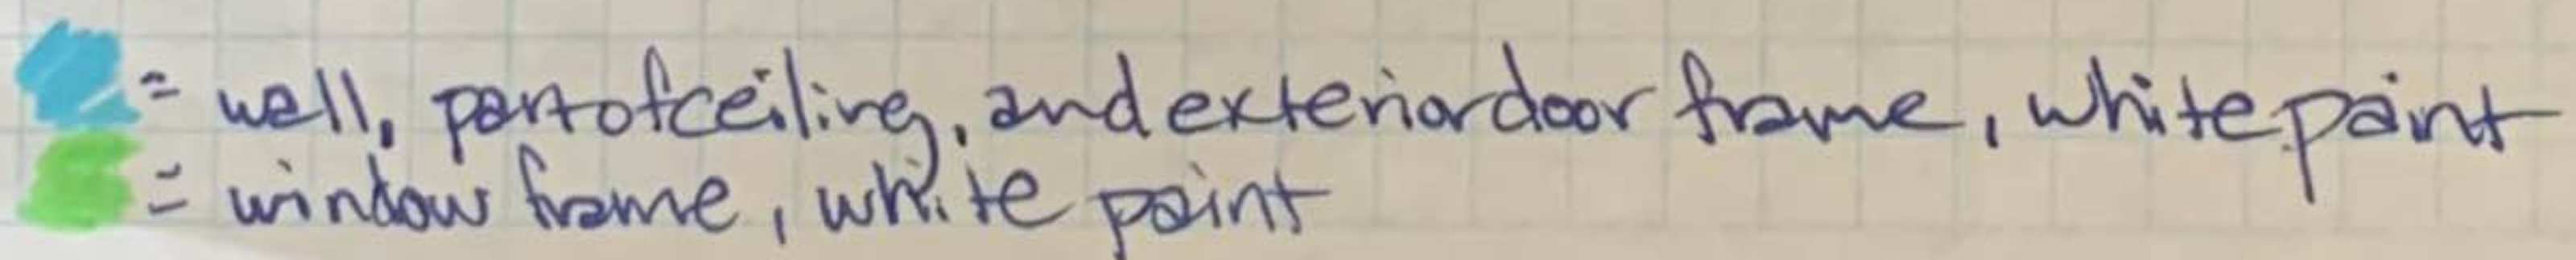 = wall, part of ceiling, and exterior door frame, white paint
= window frame, white paint